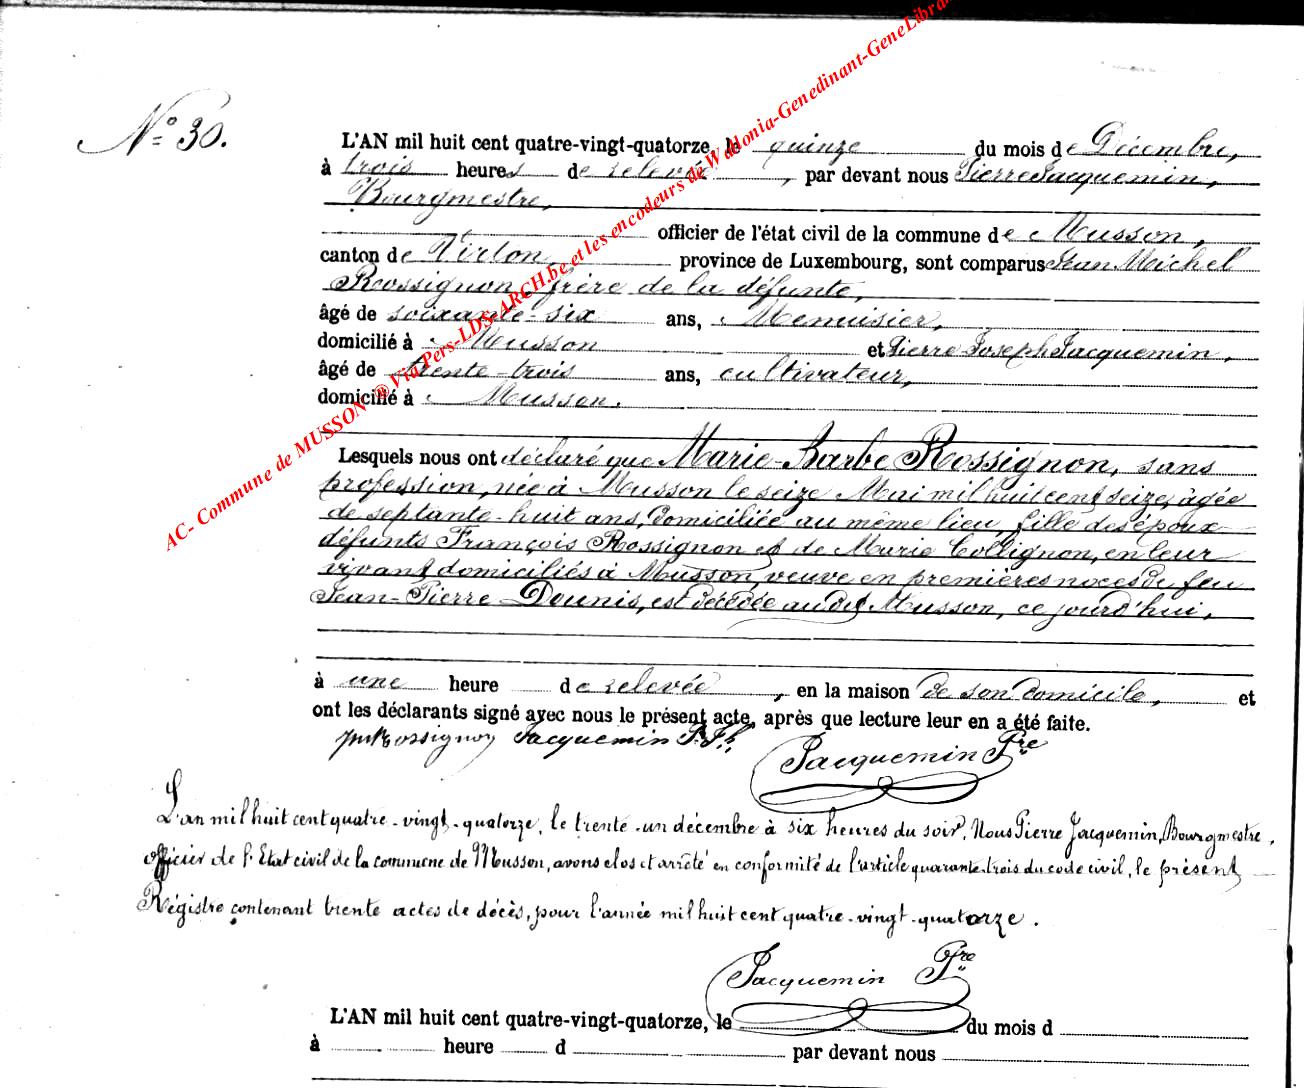 N° 30.
L'AN mil huit cent quatre-vingt-quatorze, le quinze du mois de Décembre,
à trois heures de relevée, par devant nous Pierre Jacquemin,
Bourgmestre,
officier de l'état civil de la commune de Musson,
canton de Virton, province de Luxembourg, sont comparus Jean Michel
Rossignon, frère de la défunte,
âgé de soixante-six ans, Menuisier,
domicilié à Musson et Pierre Joseph Jacquemin,
âgé de trente-trois ans, cultivateur,
domicilié à Musson.
Lesquels nous ont déclaré que Marie-Barbe Rossignon, sans
profession, née à Musson le seize Mai mil huit cent seize, âgée
de septante-huit ans, domiciliée au même lieu, fille des époux
défunts François Rossignon et de Marie Collignon, en leur
vivant domiciliés à Musson, veuve en premières noces de feu
Jean-Pierre Dounis, est décédée audit Musson, ce jourd'hui,
à une heure de relevée, en la maison de son domicile, et
ont les déclarants signé avec nous le présent acte, après que lecture leur en a été faite.
JM Rossignon Jacquemin P. Jh.
Jacquemin Pre
L'an mil huit cent quatre-vingt-quatorze, le trente-un décembre à six heures du soir, Nous Pierre Jacquemin, Bourgmestre,
officier de l'Etat civil de la commune de Musson, avons clos et arrêté en conformité de l'article quarante-trois du code civil, le présent
Régistre contenant trente actes de décès, pour l'année mil huit cent quatre-vingt-quatorze.
Jacquemin Pre
L'AN mil huit cent quatre-vingt-quatorze, le du mois d
à heure d par devant nous
AC- Commune de MUSSON ® Via Pers-LDS-ARCH.be et les encodeurs de Wallonia-Genedinant-GeneLibra